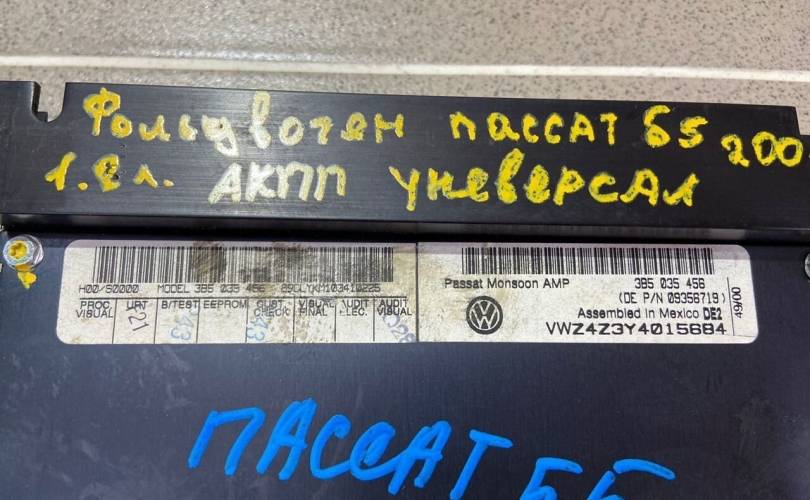 Фольцвоген пассат Б5 200
1.8 л. АКПП универсал
H00/S0000 MODEL 3B5 035 456
PROC. VISUAL URT B/TEST EEPROM CUST CHECK VISUAL FINAL AUDIT ELEC. AUDIT VISUAL
E21 43 43
Passat Monsoon AMP 3B5 035 456
(DE P/N 09356719)
Assembled in Mexico DE2
VWZ4Z3Y4015684
49/00
ПАССАТ Б5